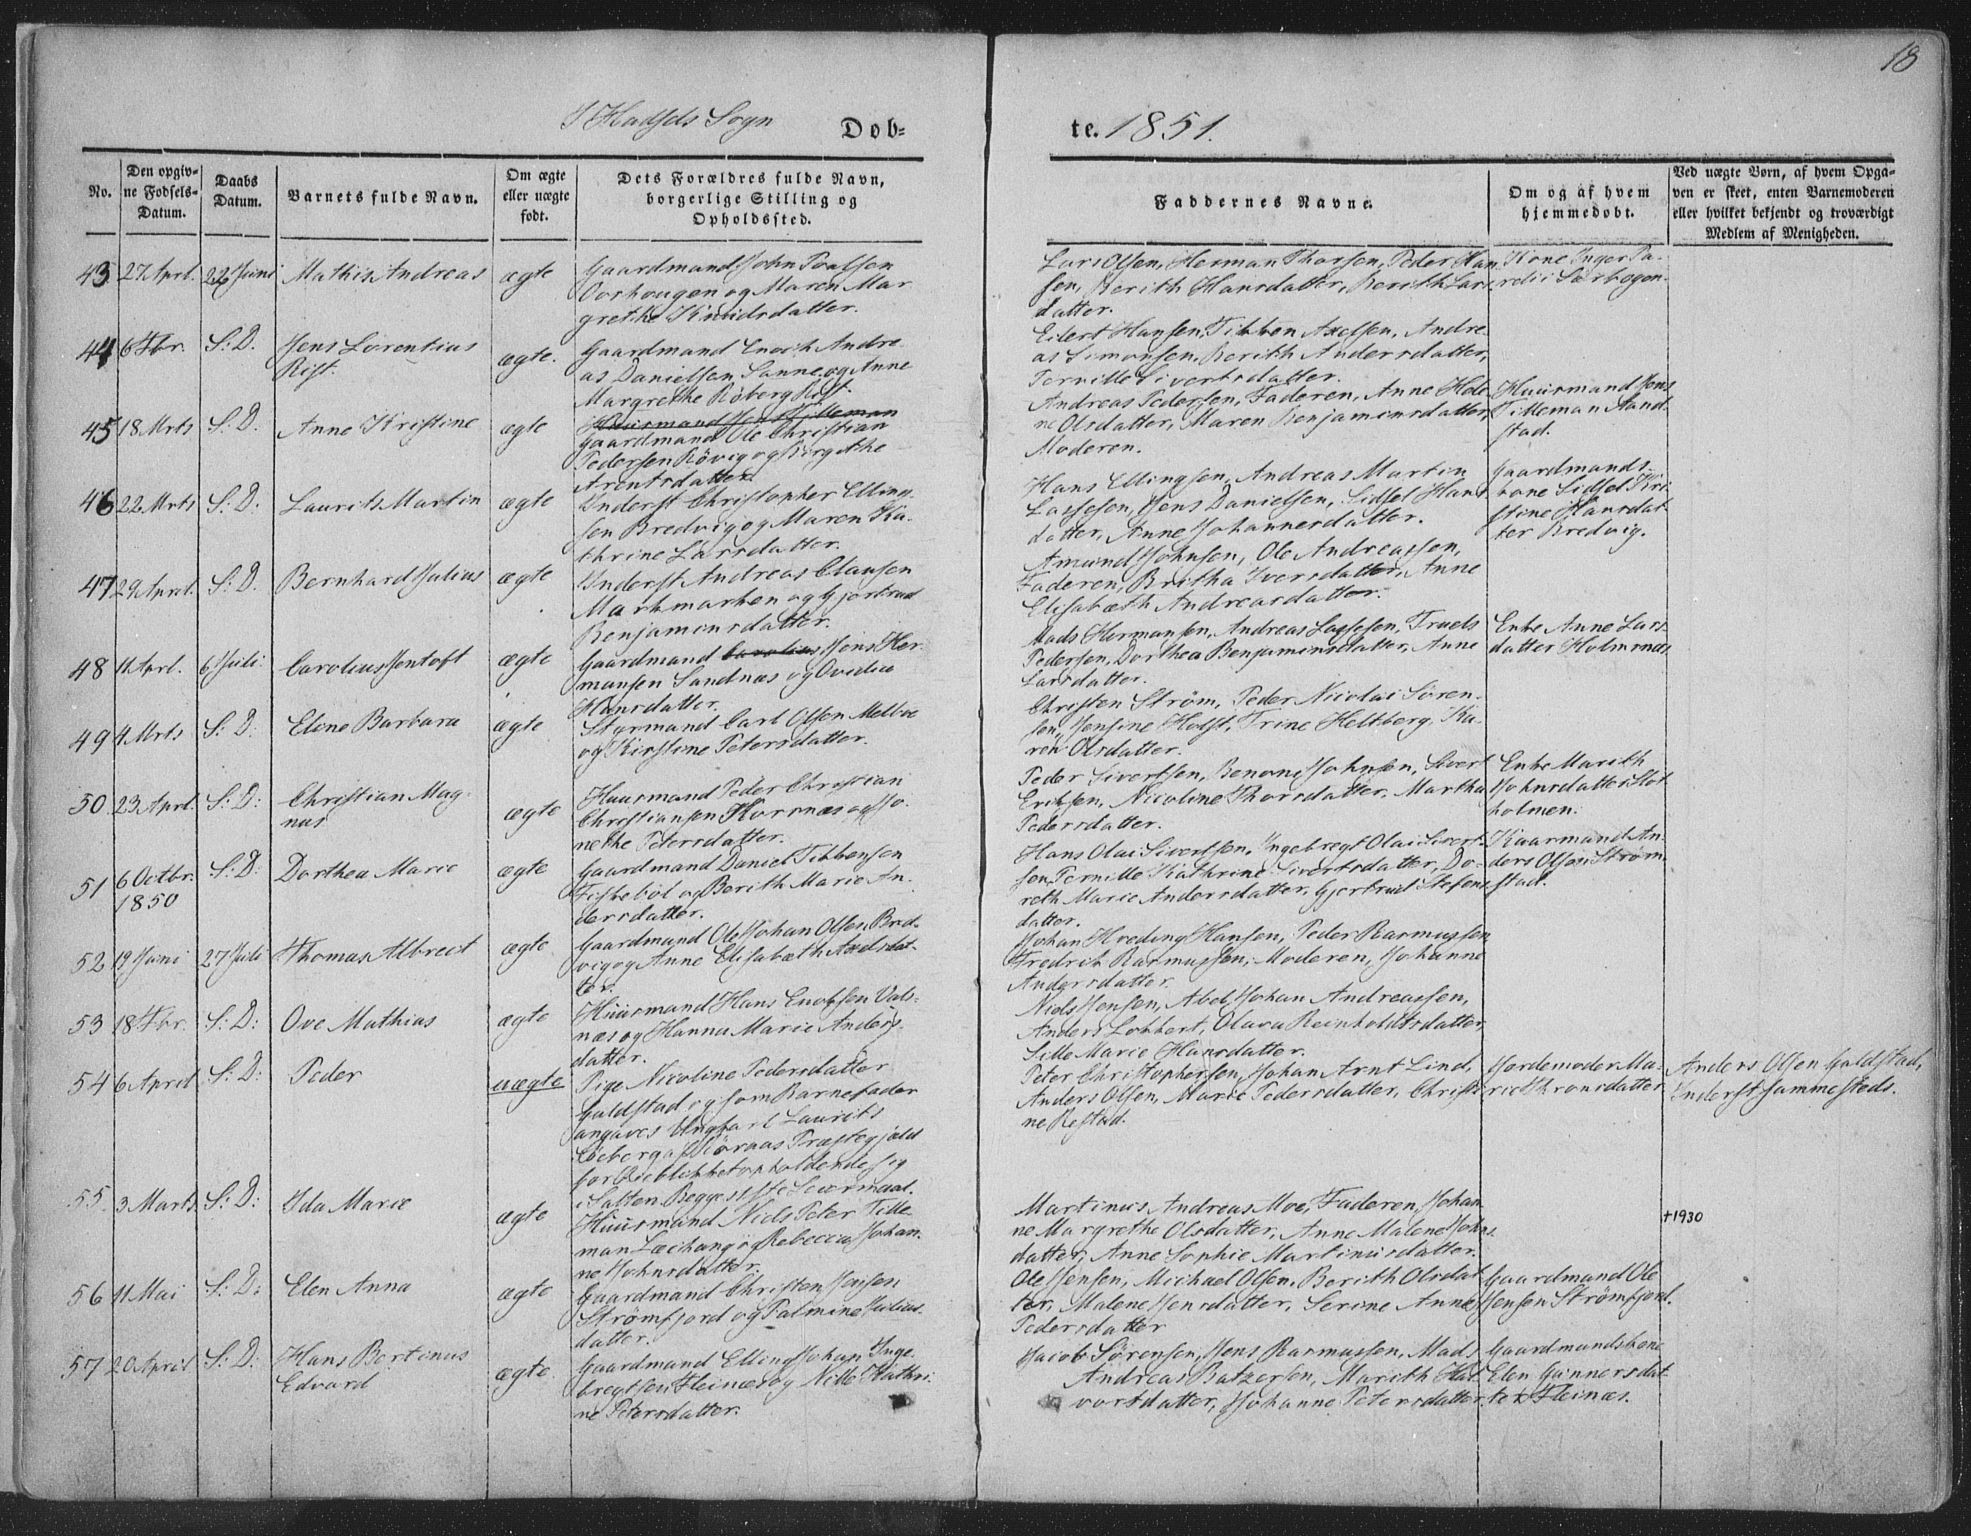 18
I Hadsels Sogn
Døb=
te. 1851.
No.
Den opgiv-
ne Fødsels-
Datum.
Daabs
Datum.
Barnets fulde Navn.
Om ægte
eller uægte
født.
Dets Forældres fulde Navn,
borgerlige Stilling og
Opholdssted.
Faddernes Navne.
Om og af hvem
hjemmedøbt.
Ved uægte Børn, af hvem Opga-
ven er skeet, enten Barnemoderen
eller hvilket bekjendt og troværdigt
Medlem af Menigheden.
43. 27 Aprl. 22 Juni Mathis Andreas ægte
Gaardmand John Poulsen
og Maren Mar
grethe Knudsdatter.
Lars Olsen, Herman Thorsen, Peder Han
sen, Berith Hansdatter, Berith Lars
datter.
Kone Inger
44 6 Fbr. S: D. Jens Lorentius
Rist.
ægte.
Gaardmand Enoch Andre
as Danielsen Sanne og Anne
Margrethe Röberg Rist.
Eilert Hansen, Tibben Axelsen, Andre
as Simonsen, Berith Andersdatter,
Pernille Sivertsdatter.
45 18 Mrts S: D. Anne Kristine ægte
Huusmand Jens Tilleman
Gaardmand Ole Christian
Pedersen Rövig og Birgithe
Arentsdatter.
Andreas Pedersen, Faderen, Anne Hele
ne Olsdatter, Maren Benjaminsdatter,
Moderen.
Huusmand Jens
Tilleman Sand
stad.
46 22 Mrts S: D. Laurits Martin ægte
Inderst Christopher Elling
sen Bredvig og Maren Ka
thrine Larsdatter.
Hans Ellingsen, Andreas Martin
Lassesen, Jens Danielsen, Sidsel Hans
datter, Anne Johannesdatter.
Gaardmands-
kone Sidsel Kri
stine Hansdat
ter Bredvig.
47 29 Aprl. S: D. Bernhard Julius ægte
Inderst Andreas Clausen
Markmarken og Gjertrud
Benjaminsdatter.
Amund Johnsen, Ole Andreassen,
Faderen, Britha Iversdatter, Anne
Elisabeth Andreasdatter.
48 11 Aprl. 6 Juli Carolius Jentoft ægte
Gaardmand Carolius Jens Her
mansen Sandnæs og Ovidia
Hansdatter.
Mads Hermansen, Andreas Lassesen, Truels
Pedersen, Dorthea Benjaminsdatter, Anne
Larsdatter.
Enke Anne Lars
datter Holmnæs
49 4 Mrts S: D: Elene Barbara ægte
Styrmand Carl Olsen Melboe
og Kirstine Petersdatter.
Christen Ström, Peder Nicolai Sören
sen, Jensine Holst, Trine Heltberg, Ka
ren Olsdatter.
50 23 Aprl. S: D: Christian Mag-
nus
ægte
Huusmand Peder Christian
Christiansen Horsnæs og Jo
nethe Petersdatter.
Peder Sivertsen, Benoni Johnsen, Sivert
Eriksen, Nicoline Thorsdatter, Martha
Pedersdatter.
Enke Marith
Johnsdatter Slot
holmen.
51 6 Octbr.
1850
S: D: Dorthea Marie ægte
Gaardmand Daniel Tibbensen
Fiskeböl og Berith Marie An
dersdatter.
Hans Olai Sivertsen, Ingebregt Olai Sivert-
sen, Pernille Kathrine Sivertsdatter, Do
reth Marie Andersdatter, Gjertrud Stefens
datter.
Huusmand An
ders Olsen Ström
stad.
52 19 Juni 27 Juli Thomas Albrect ægte
Gaardmand Ole Johan Olsen Bred
vig og Anne Elisabeth Axelsdat
ter.
Johan Hveding Hansen, Peder Rasmussen
Fredrik Rasmussen, Moderen, Johanne
Andersdatter.
53 18 Fbr. S: D: Ove Mathias ægte
Huusmand Hans Enoksen Vals-
næs og Hanna Marie Anders
datter.
Niels Jensen, Abel Johan Andreassen,
Anders Lokkert, Olava Reinholdtsdatter,
Sille Marie Hansdatter.
54 6 April S: D: Peder uægte
Pige Nicoline Pedersdatter
Guldstad og som Barnefader
angaves Ungkarl Laurits
Præstegjeld
for Øieblikket opholdende sig
i Salten. Begges 1ste Leiermaal.
Peter Christophersen, Johan Arnt Lind,
Anders Olsen, Marie Pedersdatter, Christi
ne Restad.
Jordemoder Ma-
rie Thronsdatter
Anders Olsen Guldstad,
Inderst sammesteds.
55. 3 Marts S: D: Ida Marie ægte
Huusmand Niels Peter Tille
man Læchang og Rebecca Johan
ne Johnsdatter.
Martinus Andreas Moe, Faderen, Johan
ne Margrethe Olsdatter, Anne Malene Johns
datter, Anne Sophie Martinusdatter.
+1930
56 11 Mai S: D: Elen Anna ægte
Gaardmand Christen Jensen
Strömfjord og Palmine Julius
datter.
Ole Jensen, Michael Olsen, Berith Olsdat
ter, Malene Jensdatter, Serine Anne
Pedersdatter
Gaardmand Ole
Jensen Strömfjord.
57 20 April S: D: Hans Bertinus
Edvard
ægte
Gaardmand Elling Johan Inge
bregtsen Fleinæs og Nille Kathri
ne Petersdatter.
Jacob Sörensen, Jens Rasmussen, Mads
Andreas Balzersen, Marith Hal
vorsdatter, Johanne Petersdatter
Gaardmandskone
Elen Gunnersdat
ter Fleinæs.